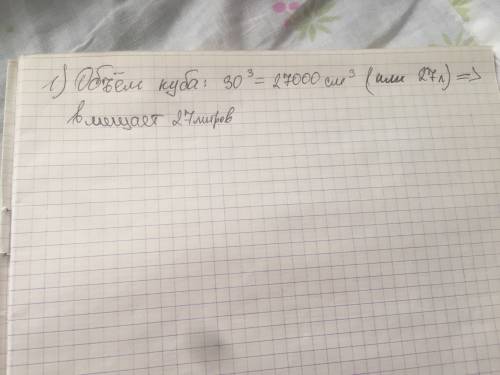 1) Объём куба: 30³ = 27000 см³ (или 27л) =>
вмещает 27 литров